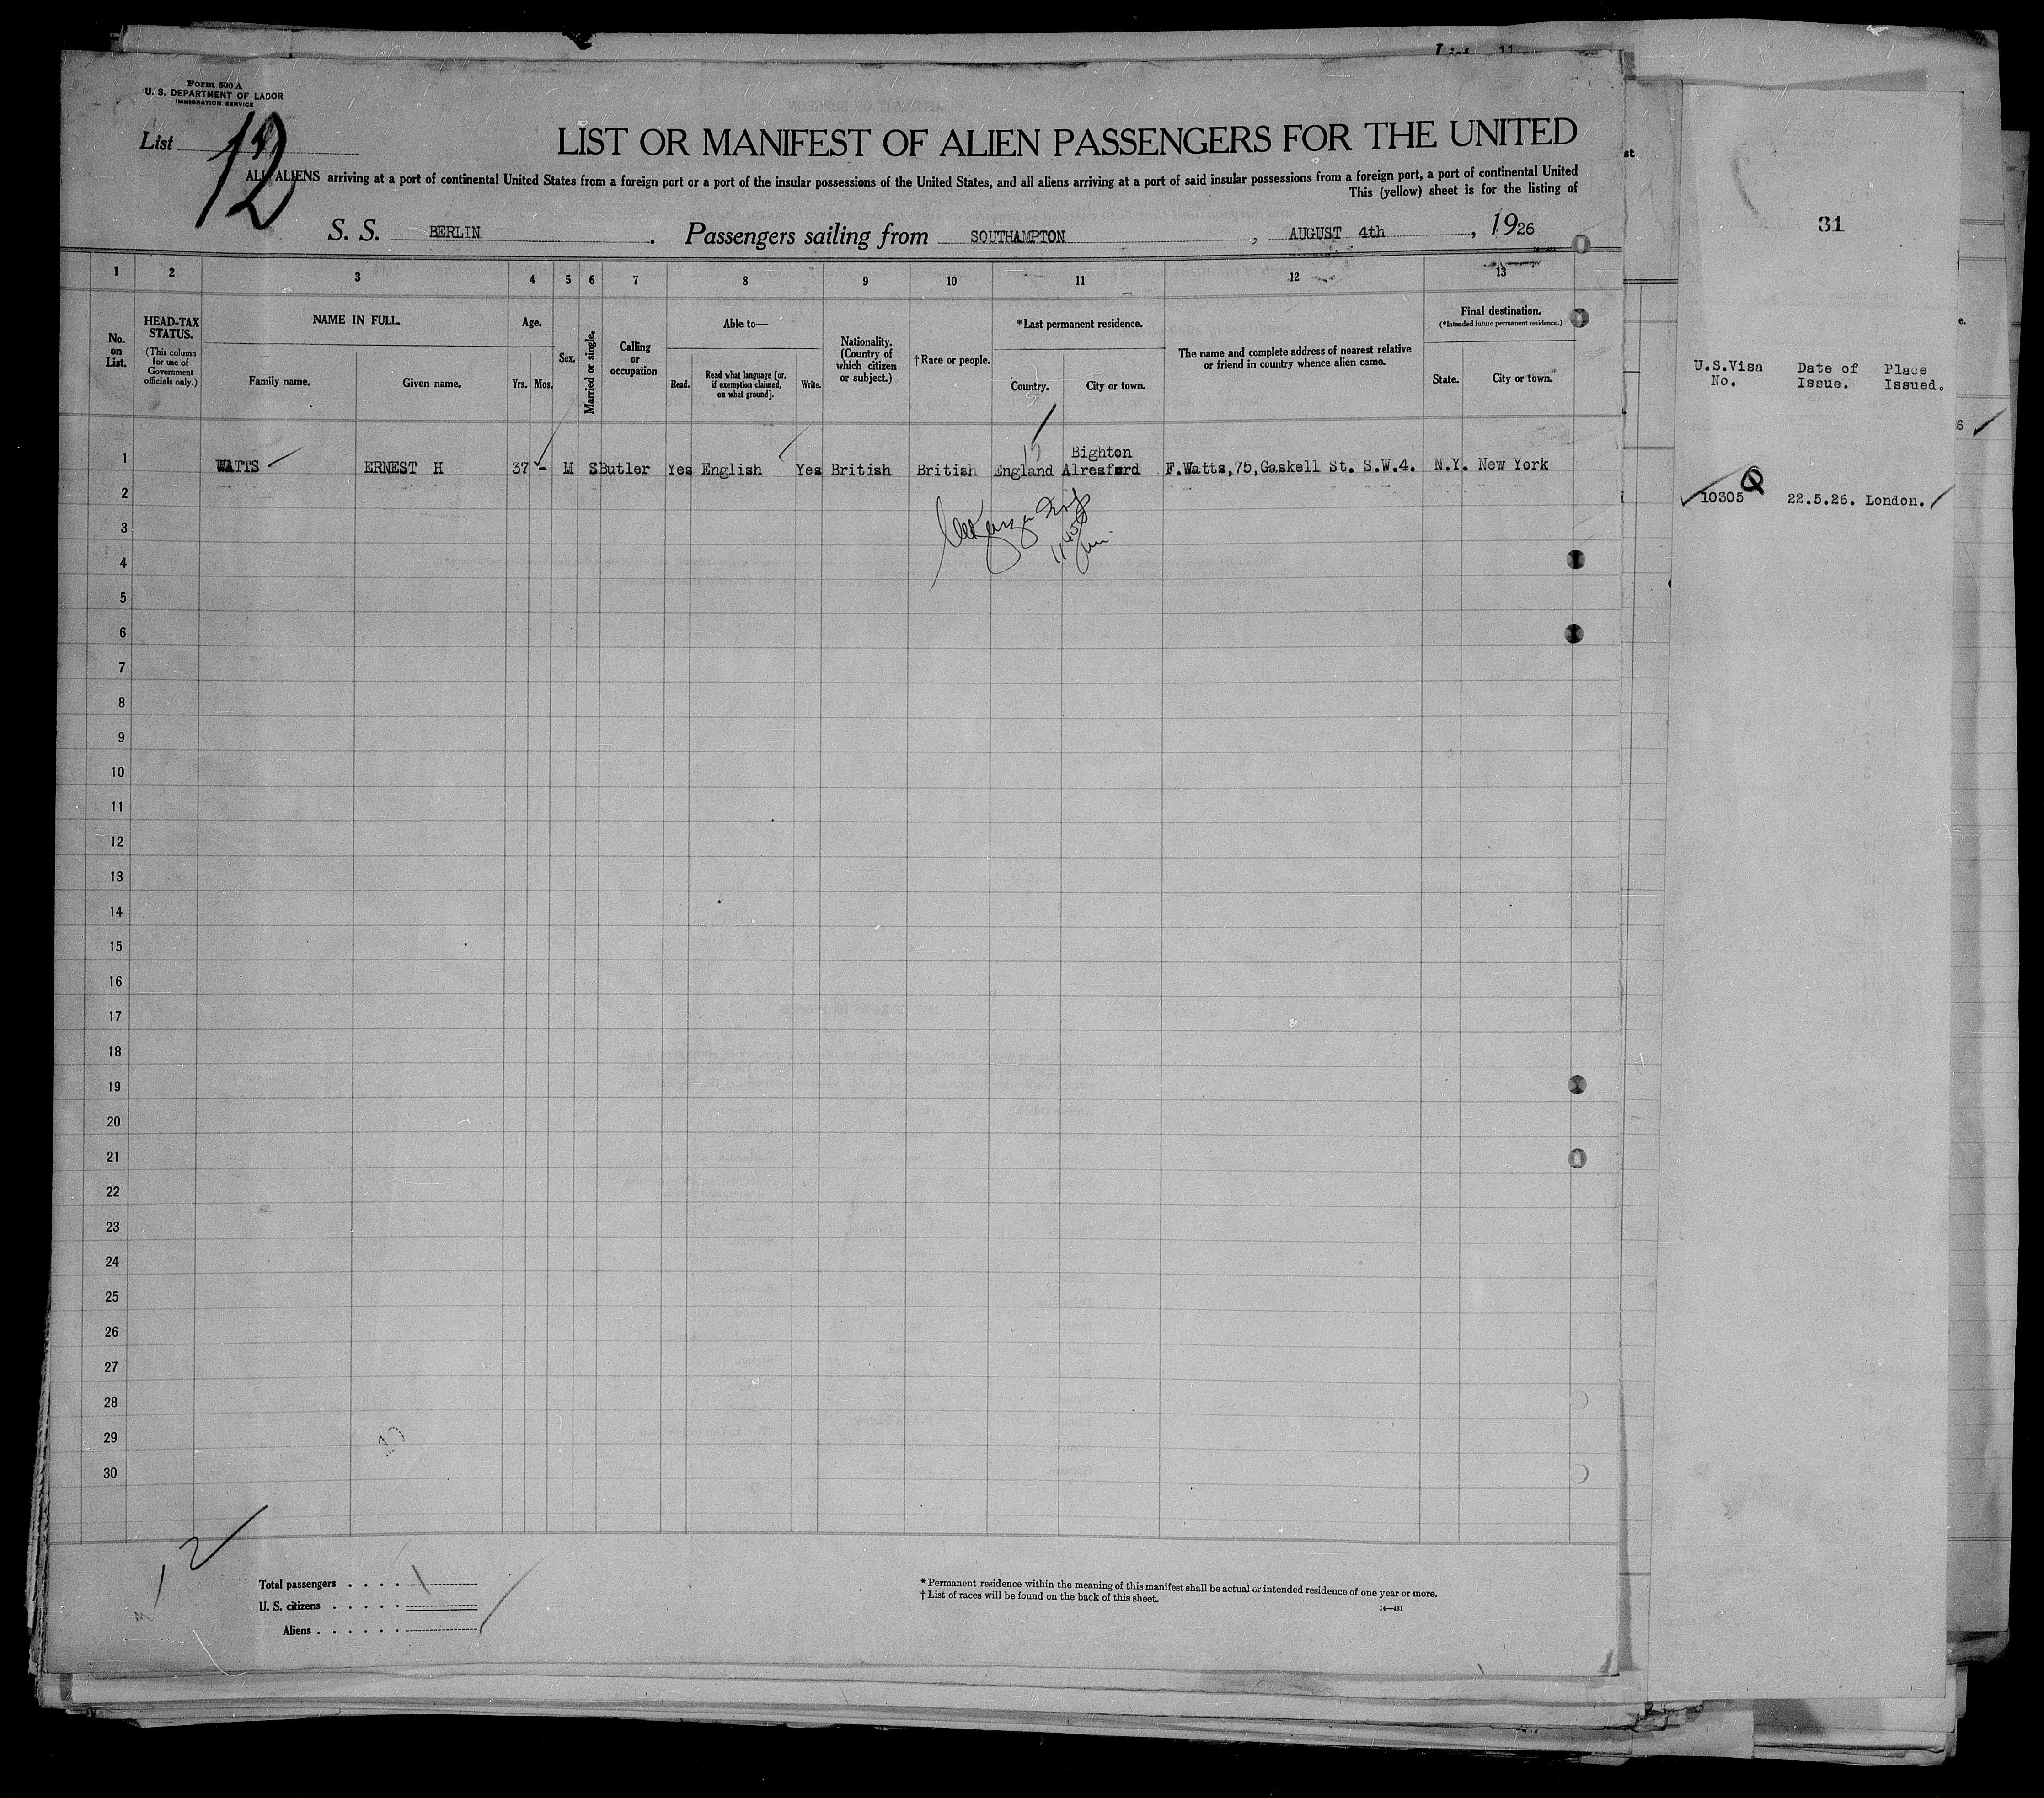 Form 500 A
U. S. DEPARTMENT OF LABOR
IMMIGRATION SERVICE
List 12
LIST OR MANIFEST OF ALIEN PASSENGERS FOR THE UNITED
ALL ALIENS arriving at a port of continental United States from a foreign port or a port of the insular possessions of the United States, and all aliens arriving at a port of said insular possessions from a foreign port, a port of continental United
This (yellow) sheet is for the listing of
S. S. BERLIN. Passengers sailing from SOUTHAMPTON, AUGUST 4th, 1926
1 2 3 4 5 6 7 8 9 10 11 12 13
No. on List.
HEAD-TAX STATUS.
(This column for use of Government officials only.)
NAME IN FULL.
Family name. Given name.
Age.
Yrs. Mos.
Sex.
Married or single.
Calling or occupation
Able to—
Read. Read what language [or, if exemption claimed, on what ground]. Write.
Nationality. (Country of which citizen or subject.)
†Race or people.
*Last permanent residence.
Country. City or town.
The name and complete address of nearest relative or friend in country whence alien came.
Final destination.
(*Intended future permanent residence.)
State. City or town.
1 WATTS ERNEST H 37 - M S Butler Yes English Yes British British England Bighton Alresford F.Watts,75,Gaskell St. S.W.4. N.Y. New York
2
3
4
5
6
7
8
9
10
11
12
13
14
15
16
17
18
19
20
21
22
23
24
25
26
27
28
29
30
12
Total passengers . . . . 1
U. S. citizens . . . . .
Aliens . . . . . .
* Permanent residence within the meaning of this manifest shall be actual or intended residence of one year or more.
† List of races will be found on the back of this sheet.
14—431
31
U.S.Visa No. Date of Issue. Place Issued.
10305 22.5.26. London.